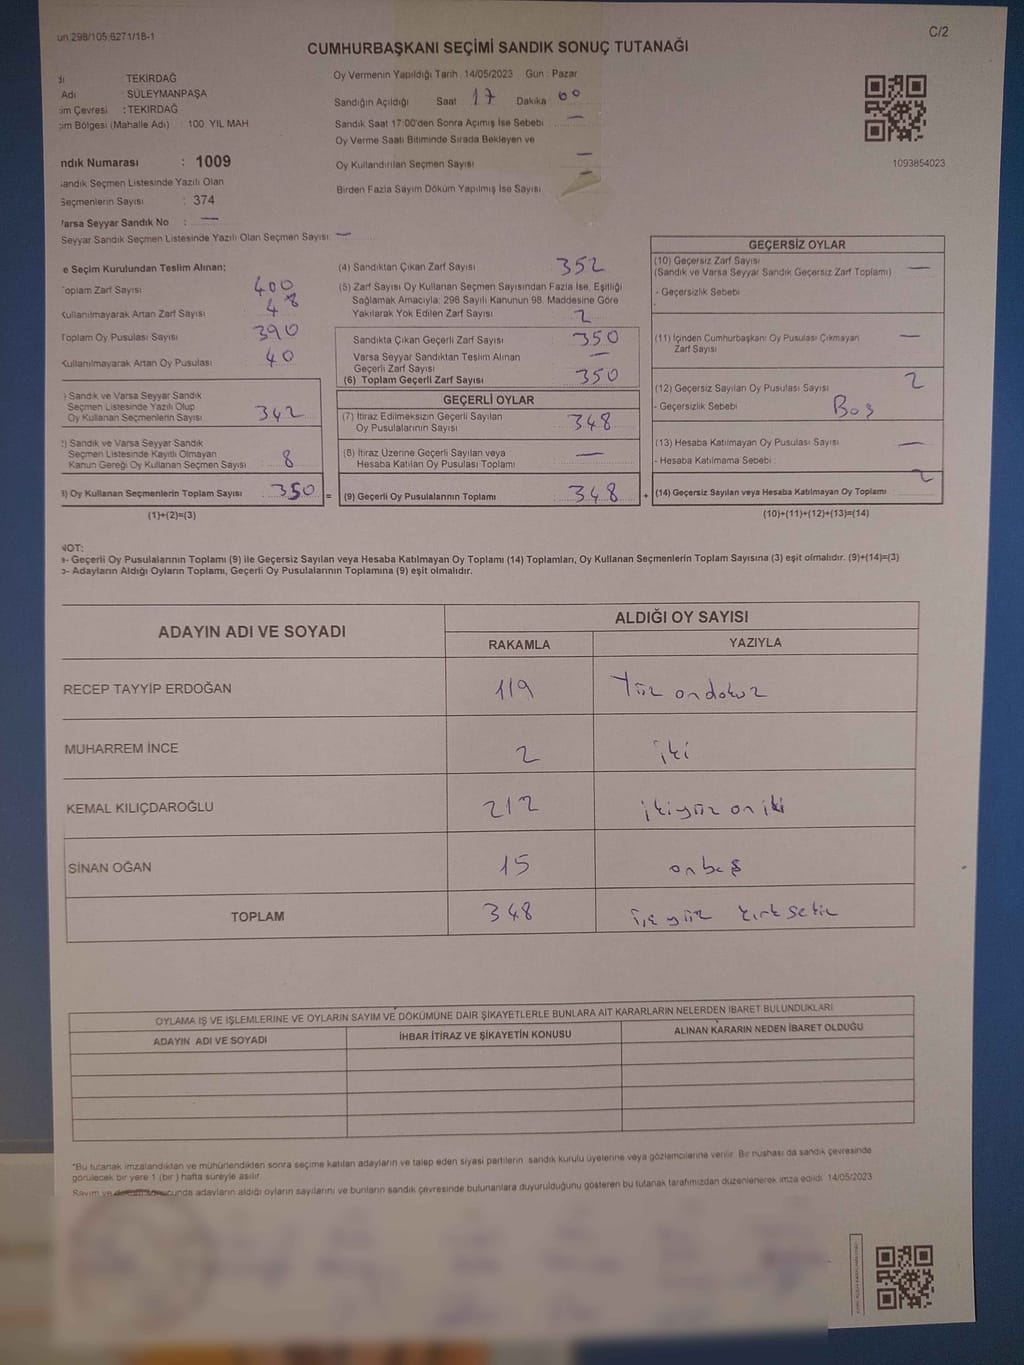 un 298/105.6271/18-1
C/2
CUMHURBAŞKANI SEÇİMİ SANDIK SONUÇ TUTANAĞI
TEKİRDAĞ
Adı : SÜLEYMANPAŞA
im Çevresi : TEKİRDAĞ
im Bölgesi (Mahalle Adı) : 100. YIL MAH.
ndık Numarası : 1009
andık Seçmen Listesinde Yazılı Olan
Seçmenlerin Sayısı : 374
Varsa Seyyar Sandık No : —
Seyyar Sandık Seçmen Listesinde Yazılı Olan Seçmen Sayısı: —
Oy Vermenin Yapıldığı Tarih : 14/05/2023 Gün : Pazar
Sandığın Açıldığı Saat 17 Dakika 00
Sandık Saat 17:00'den Sonra Açımış İse Sebebi —
Oy Verme Saati Bitiminde Sırada Bekleyen ve
Oy Kullandırılan Seçmen Sayısı —
Birden Fazla Sayım Döküm Yapılmış İse Sayısı —
1093854023
e Seçim Kurulundan Teslim Alınan;
Toplam Zarf Sayısı 400
Kullanılmayarak Artan Zarf Sayısı 48
Toplam Oy Pusulası Sayısı 390
Kullanılmayarak Artan Oy Pusulası 40
) Sandık ve Varsa Seyyar Sandık
Seçmen Listesinde Yazılı Olup
Oy Kullanan Seçmenlerin Sayısı 342
2) Sandık ve Varsa Seyyar Sandık
Seçmen Listesinde Kayıtlı Olmayan
Kanun Gereği Oy Kullanan Seçmen Sayısı 8
3) Oy Kullanan Seçmenlerin Toplam Sayısı 350 =
(1)+(2)=(3)
(4) Sandıktan Çıkan Zarf Sayısı 352
(5) Zarf Sayısı Oy Kullanan Seçmen Sayısından Fazla İse, Eşitliği
Sağlamak Amacıyla; 298 Sayılı Kanunun 98. Maddesine Göre
Yakılarak Yok Edilen Zarf Sayısı 2
Sandıkta Çıkan Geçerli Zarf Sayısı 350
Varsa Seyyar Sandıktan Teslim Alınan
Geçerli Zarf Sayısı —
(6) Toplam Geçerli Zarf Sayısı 350
GEÇERLİ OYLAR
(7) İtiraz Edilmeksizin Geçerli Sayılan
Oy Pusulalarının Sayısı 348
(8) İtiraz Üzerine Geçerli Sayılan veya
Hesaba Katılan Oy Pusulası Toplamı —
(9) Geçerli Oy Pusulalarının Toplamı 348 +
GEÇERSİZ OYLAR
(10) Geçersiz Zarf Sayısı
(Sandık ve Varsa Seyyar Sandık Geçersiz Zarf Toplamı) —
- Geçersizlik Sebebi
(11) İçinden Cumhurbaşkanı Oy Pusulası Çıkmayan
Zarf Sayısı —
(12) Geçersiz Sayılan Oy Pusulası Sayısı 2
- Geçersizlik Sebebi Boş
(13) Hesaba Katılmayan Oy Pusulası Sayısı —
- Hesaba Katılmama Sebebi :
(14) Geçersiz Sayılan veya Hesaba Katılmayan Oy Toplamı 2
(10)+(11)+(12)+(13)=(14)
NOT:
a- Geçerli Oy Pusulalarının Toplamı (9) ile Geçersiz Sayılan veya Hesaba Katılmayan Oy Toplamı (14) Toplamları, Oy Kullanan Seçmenlerin Toplam Sayısına (3) eşit olmalıdır. (9)+(14)=(3)
b- Adayların Aldığı Oyların Toplamı, Geçerli Oy Pusulalarının Toplamına (9) eşit olmalıdır.
ADAYIN ADI VE SOYADI
ALDIĞI OY SAYISI
RAKAMLA YAZIYLA
RECEP TAYYİP ERDOĞAN 119 Yüz ondokuz
MUHARREM İNCE 2 iki
KEMAL KILIÇDAROĞLU 212 ikiyüz on iki
SİNAN OĞAN 15 onbeş
TOPLAM 348 üçyüz kırk sekiz
OYLAMA İŞ VE İŞLEMLERİNE VE OYLARIN SAYIM VE DÖKÜMÜNE DAİR ŞİKAYETLERLE BUNLARA AİT KARARLARIN NELERDEN İBARET BULUNDUKLARI
ADAYIN ADI VE SOYADI İHBAR İTİRAZ VE ŞİKAYETİN KONUSU ALINAN KARARIN NEDEN İBARET OLDUĞU
*Bu tutanak imzalandıktan ve mühürlendikten sonra seçime katılan adayların ve talep eden siyasi partilerin sandık kurulu üyelerine veya gözlemcilerine verilir. Bir nüshası da sandık çevresinde
görülecek bir yere 1 (bir ) hafta süreyle asılır.
Sayım ve döküm sonucunda adayların aldığı oyların sayılarını ve bunların sandık çevresinde bulunanlara duyurulduğunu gösteren bu tutanak tarafımızdan düzenlenerek imza edildi. 14/05/2023